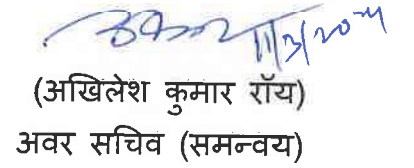 11/3/2024
(अखिलेश कुमार रॉय)
अवर सचिव (समन्वय)